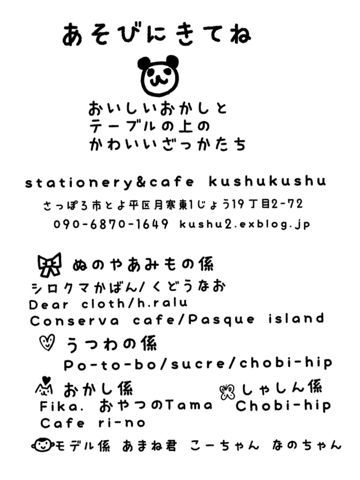 あそびにきてね
おいしいおかしと
テーブルの上の
かわいいざっかたち
stationery&cafe kushukushu
さっぽろ市とよ平区月寒東1じょう19丁目2-72
090-6870-1649 kushu2.exblog.jp
ぬのやあみもの係
シロクマかばん/くどうなお
Dear cloth/h.ralu
Conserva cafe/Pasque island
うつわの係
Po-to-bo/sucre/chobi-hip
おかし係
Fika. おやつのTama
Cafe ri-no
しゃしん係
Chobi-hip
モデル係 あまね君 こーちゃん なのちゃん